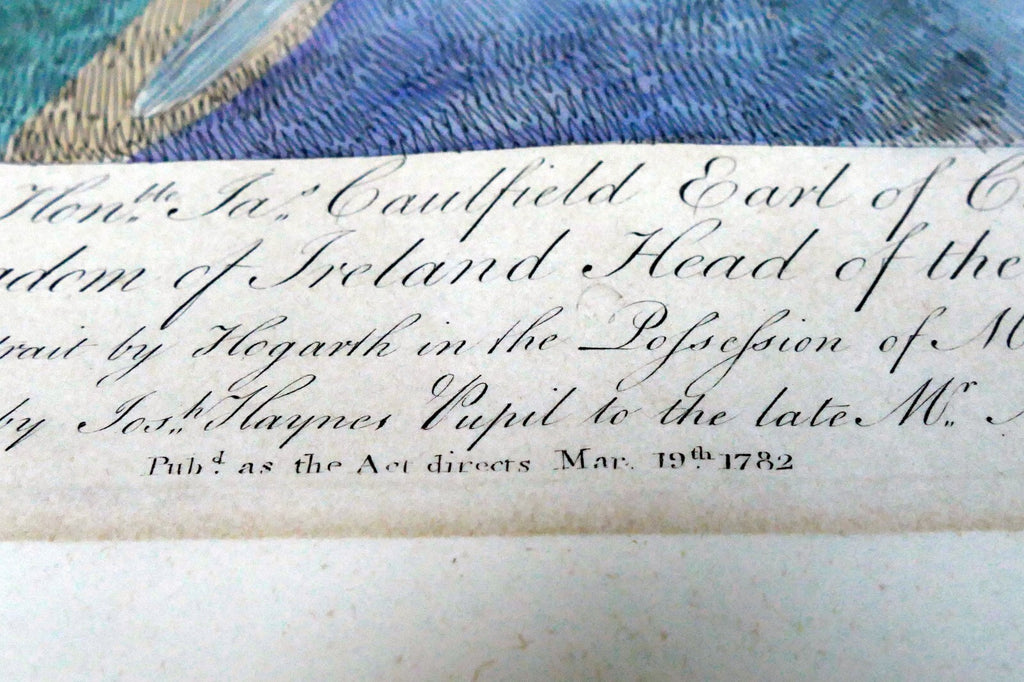 Hon.ble Jas. Caulfield Earl of C
adom of Ireland Head of the
trait by Hogarth in the Possession of M
by Josh. Haynes Pupil to the late Mr.
Pubd. as the Act directs Mar. 19th. 1782